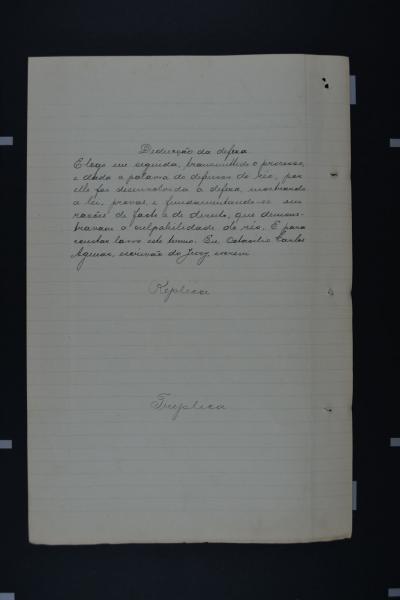 Deducção da defeza
E logo em seguida, transmittido o processo,
e dada a palavra do defensor do réo, por
elle foi desenvolvida a defeza, mostrando
a lei, provas e fundamentando-se em
razões de facto e de direito, que demons-
travam a culpabilidade do réo. E para
constar lavro este termo. Eu, Carlos
Aguiar, escrivão do Jury, escrevi
Replica
Treplica